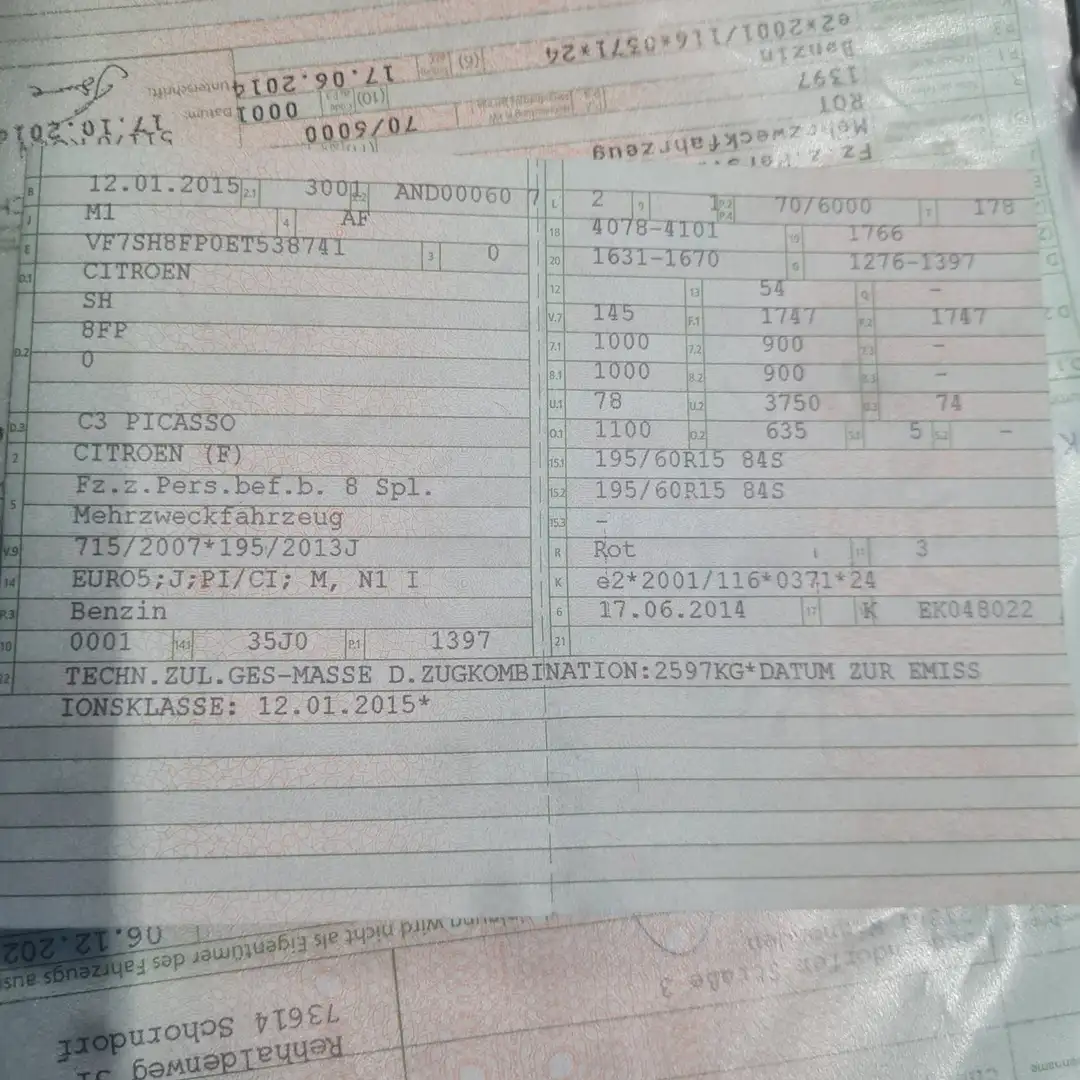 e2*2001/116*0371*24
Benzin
1397
ROT
Mehrzweckfahrzeug
(6) 17.06.2014
(10) 0001
70/6000
Datum:
Unterschrift:
B 12.01.2015 2.1 3001 2.2 AND00060 7
J M1 4 AF
E VF7SH8FP0ET538741 3 0
D.1 CITROEN
SH
8FP
D.2 0
D.3 C3 PICASSO
2 CITROEN (F)
5 Fz.z.Pers.bef.b. 8 Spl.
Mehrzweckfahrzeug
V.9 715/2007*195/2013J
14 EURO5;J;PI/CI; M, N1 I
P.3 Benzin
10 0001 14.1 35J0 P.1 1397
L 2 9 1 P.2 P.4 70/6000 T 178
18 4078-4101 19 1766
20 1631-1670 G 1276-1397
12 13 54 Q –
V.7 145 F.1 1747 F.2 1747
7.1 1000 7.2 900 7.3 –
8.1 1000 8.2 900 8.3 –
U.1 78 U.2 3750 U.3 74
O.1 1100 O.2 635 S.1 5 S.2 –
15.1 195/60R15 84S
15.2 195/60R15 84S
15.3 –
R Rot 11 3
K e2*2001/116*0371*24
6 17.06.2014 17 K EK048022
21
22 TECHN.ZUL.GES-MASSE D.ZUGKOMBINATION:2597KG*DATUM ZUR EMISS
IONSKLASSE: 12.01.2015*
06.12.202
wird nicht als Eigentümer des Fahrzeugs
Straße 3
73614 Schorndorf
Rehhaldenweg